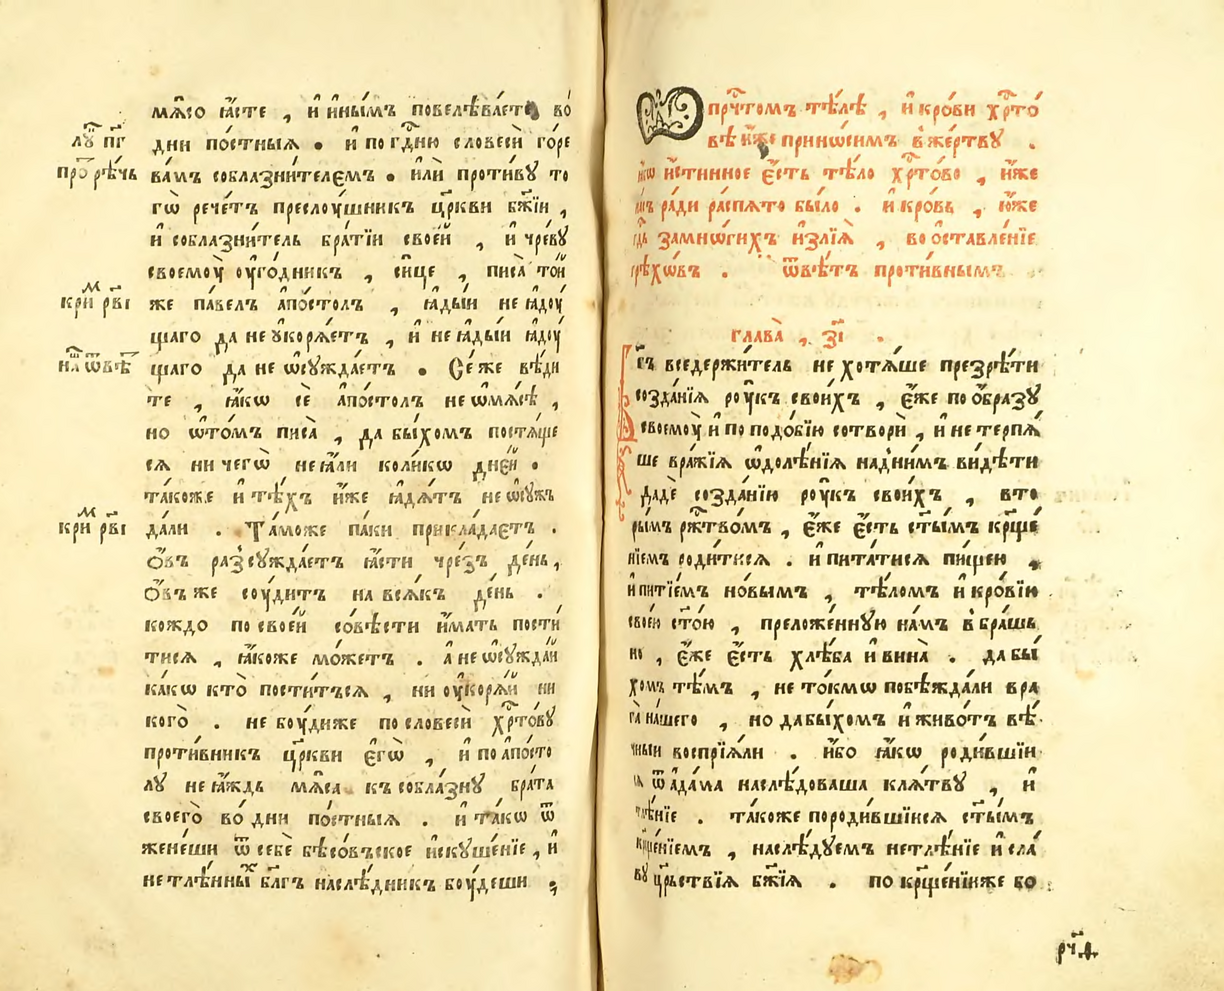 мѧ҃со ꙗ҆́сте , и҆ и҆ны́мъ повелѣва́ете во̀
лꙋ҃ пг҃
дни по́стныѧ . и҆ по гд҇ню словесѝ го́ре
про҇ рѣ́чь
ва́мъ соблазни́телемъ . и҆лѝ проти́вꙋ то
гѡ̀ рече́тъ преслоу́шникъ цр҃кви бж҃їи ,
и҆ соблазни́тель бра́тїи свое́й , и҆ чре́вꙋ
своемоу̀ оу҆го́дникъ , си́це , писа̀ то́й
кри рв҃і
же па́велъ а҆по́столъ , ꙗ҆ды́и не ꙗ҆доу́
щаго да не ᲂу҆корѧ́етъ , и҆ не ꙗ҆ды́и ꙗ҆доу́
на ѿвѣ
щаго да не ѡ҆сꙋжда́етъ . Се́ же вѣ́ди
те , ꙗ҆́кѡ сѐ а҆по́столъ не ѡ҆ мѧ́сѣ ,
но ѡ҆ то́мъ писа̀ , да бы́хомъ постѧ́ще
сѧ ничего̀ не ꙗ҆́ли коли́кѡ дне́й .
та́коже и҆ тѣ́хъ и҆̀же ꙗ҆дѧ́тъ не ѡ҆сꙋж
кри рв҃і
да́ли . Та́може па́ки прикла́даетъ .
Ѻ҆́въ разꙋсꙋжда́етъ ꙗ҆́сти чре́зъ де́нь ,
Ѻ҆́въ же соу́дитъ на всѧ́къ де́нь .
кождо по свое́й со́вѣсти и҆́мать пости́
тисѧ , ꙗ҆́коже мо́жетъ . а҆ не ѡ҆сꙋжда́й
ка́кѡ кто̀ пости́тъсѧ , ни оу҆корѧ́й ни
кого̀ . не боу́ди же по словесѝ хр҇то́вꙋ
проти́вникъ цр҃кви є҆гѡ̀ , и҆ по а҆по́сто
лꙋ не ꙗ҆́ждь мѧ́са къ собла́знꙋ бра́та
своего̀ во̀ дни по́стныѧ . и҆ та́кѡ ѿ
жене́ши ѿ себѐ бѣсо́въское и҆скꙋше́нїе , и҆
нетлѣ́нныⷯ бл҃гъ наслѣ́дникъ боу́деши ,
Ѡ҆ прⷱ҇томъ тѣ́лѣ , и҆ кро́ви хр҇то́
вѣ ю҆́же прино́симъ в̾ же́ртвꙋ .
ꙗ҆́кѡ и҆́стинное є҆́сть тѣ́ло хр҇то́во , и҆́же
на́съ ра́ди распѧ́то бы́ло . и҆ кро́вь , ю҆́же
гд҇ь за мнѡ́гихъ и҆злїѧ̀ , во ѡ҆ставле́нїе
грѣхѡ́въ . ѿвѣ́тъ проти́внымъ .
глава̀ , зі҃ .
Гд҇ь вседержи́тель не хотѧ́ше презрѣ́ти
созда́нїѧ роу́къ свои́хъ , є҆́же по ѻ҆́бразꙋ
своемоу̀ и҆ по подо́бїю сотворѝ , и҆ не терпѧ́
ше вра́жїѧ ѡ҆долѣ́нїѧ над̾ни́мъ ви́дѣти
дадѐ созда́нїю роу́къ свои́хъ , вто
ры́мъ рж҇тво́мъ , є҆́же є҆́сть ст҃ы́мъ крщ҃е́
нїемъ роди́тисѧ . и҆ пита́тисѧ пи́щею ,
и҆ питїе́мъ но́вымъ , тѣ́ломъ и҆ кро́вїю
свое́ю ст҃о́ю , преложе́ннꙋю на́мъ в̾ бра́шь
но , є҆́же є҆́сть хлѣ́ба и҆ вина̀ . да бы́
хомъ тѣ́мъ , не то́кмѡ побѣжда́ли вра
га̀ на́шего , но да бы́хомъ и҆ живо́тъ вѣ́
чныи воспрїѧ́ли . и҆́бо ꙗ҆́кѡ роди́вшїи
сѧ ѿ а҆да́ма наслѣ́доваша клѧ́твꙋ , и҆
тлѣ́нїе . та́коже породи́вшїисѧ ст҃ы́мъ
крщ҃е́нїемъ , наслѣ́дꙋемъ нетлѣ́нїе и҆ сла́
вꙋ цр҇ьствїѧ бж҃їѧ . по крщ҃е́нїи же бо
рч҃д